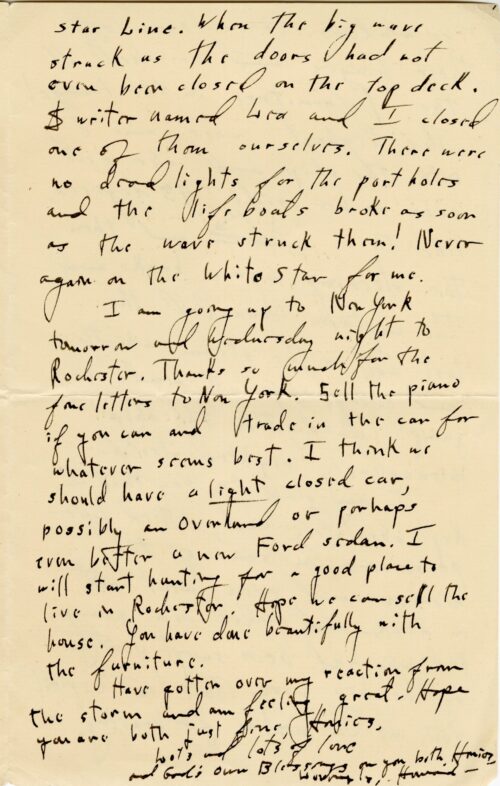 Star Line. When the big wave
struck us the doors had not
even been closed on the top deck.
writer named Leo and I closed
one of them ourselves. There were
no dead lights for the port holes
and the life boats broke as soon
as the wave struck them! Never
again on the White Star for me.
I am going up to New York
tomorrow and Wednesday night to
Rochester. Thanks so much for the
fone letters to New York. Sell the piano
if you can and trade in the car for
whatever seems best. I think we
should have a light closed car,
possibly an Overland or perhaps
even better a new Ford sedan. I
will start hunting for a good place to
live in Rochester. Hope we can sell the
house. You have done beautifully with
the furniture.
Have gotten over my reaction from
the storm and am feeling great. Hope
you are both just fine,
Lots and lots of love
and God's Own Blessings on you both,
Howard